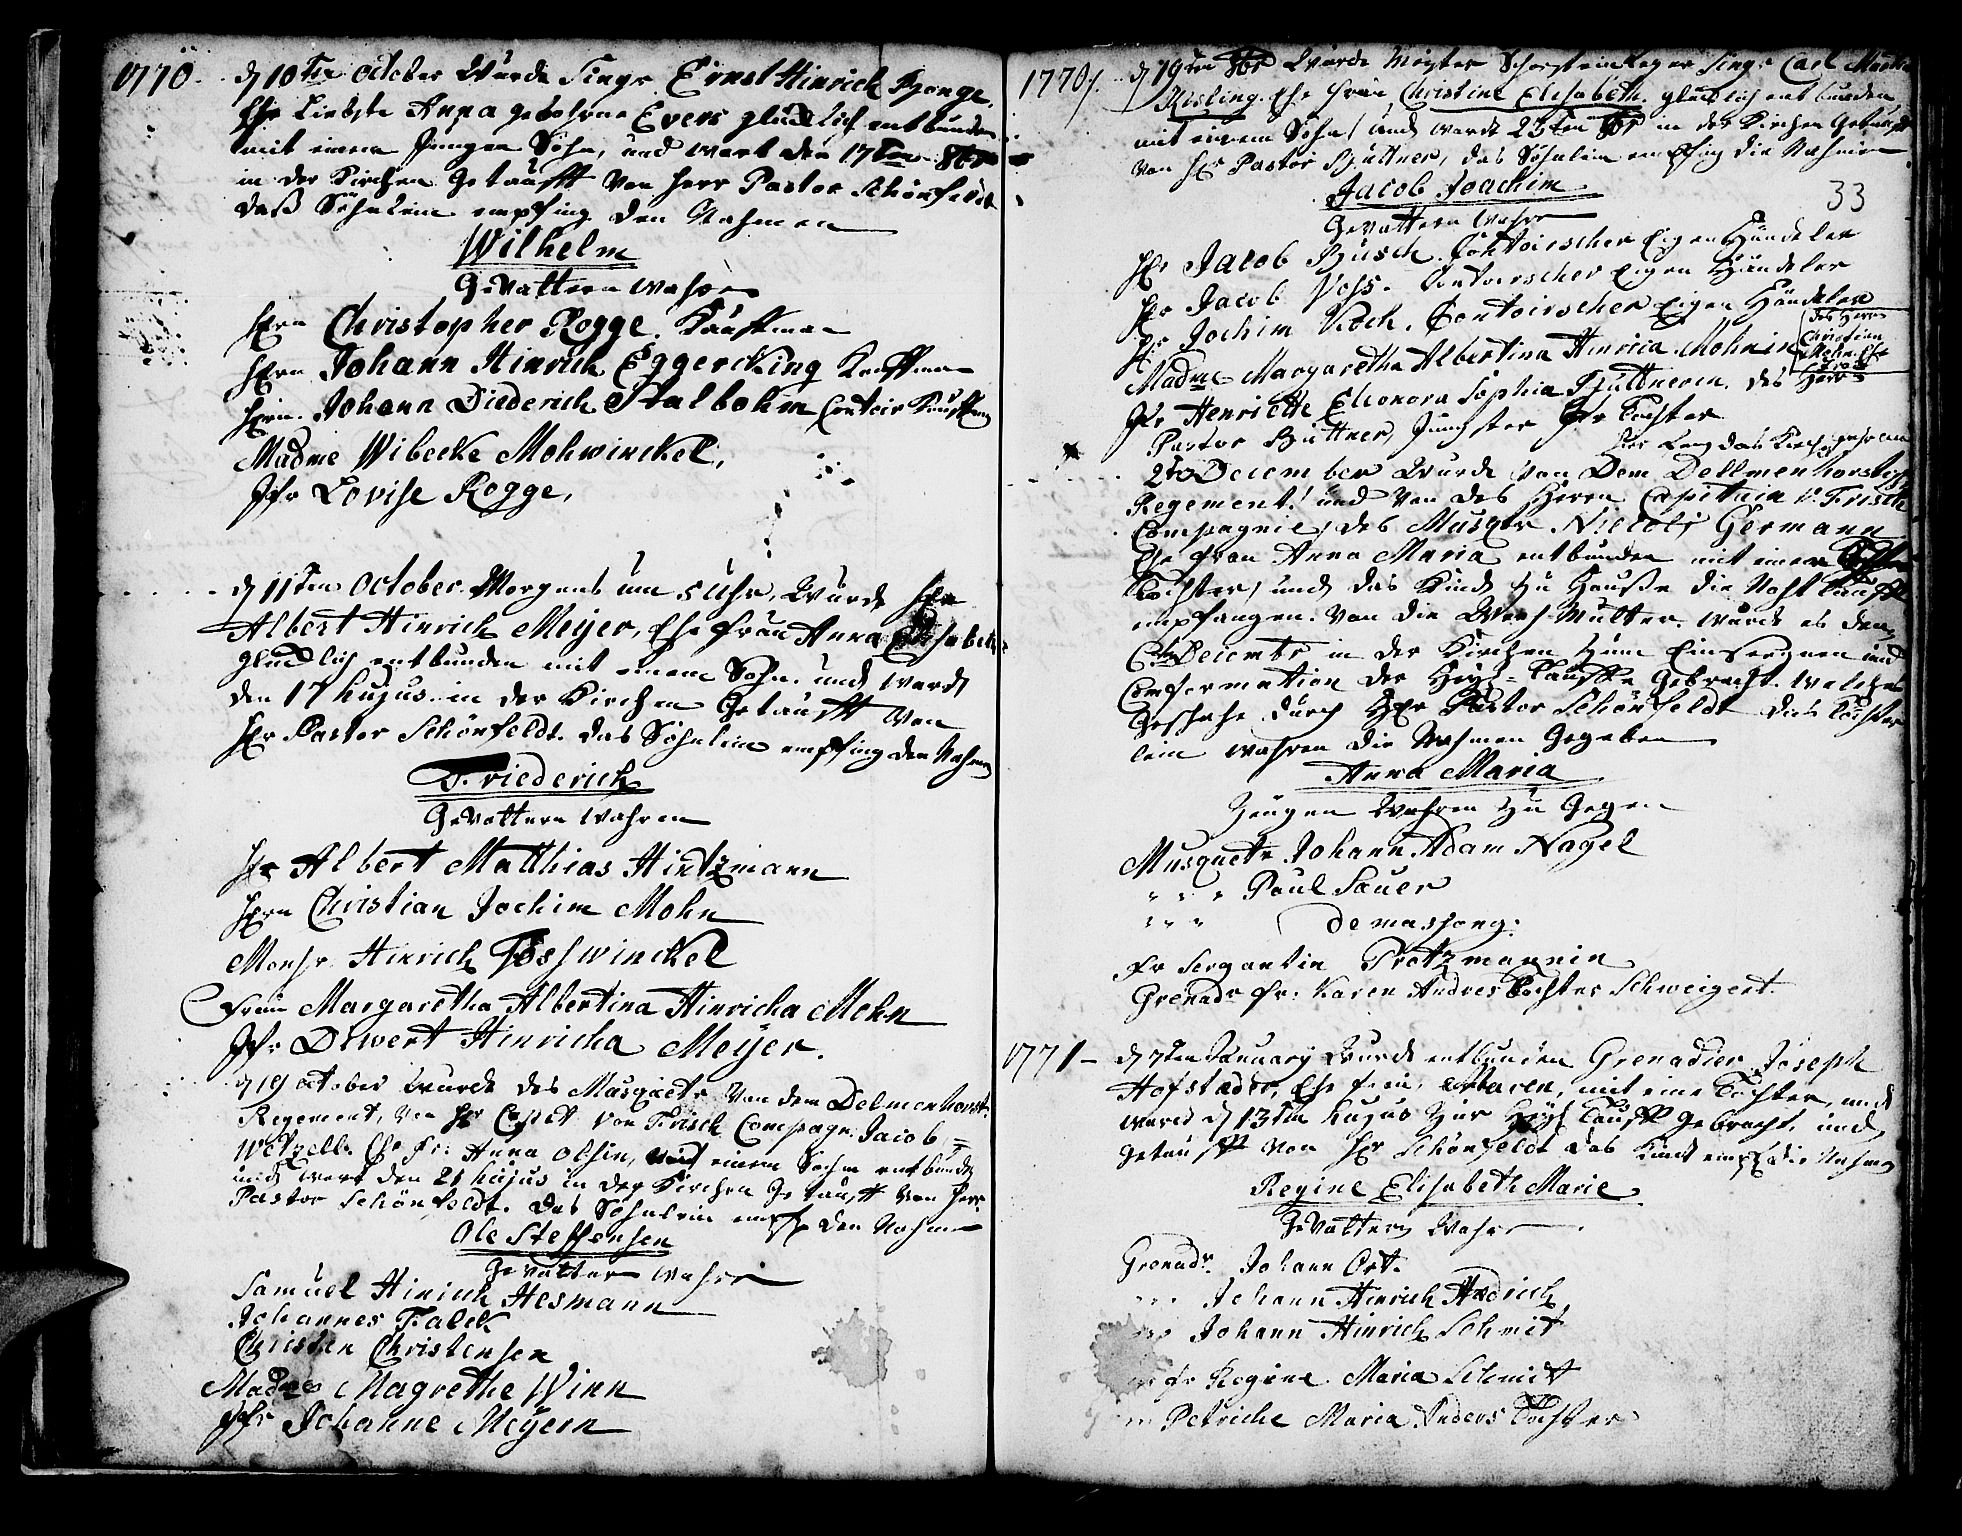 1770. d 10ten October Wurde Singr Ernst Hinrich Bange,
Ehe Liebste Anna gebohrne Evers glücklich entbunden
mit einem Jungen Sohn, und wart den 17ten 8br
in der Kirchen Getaufft Von Herr Pastor Schönfeldt
daß Söhnlein empfing den Nahmen
Wilhelm
Gevattern wahren
Herrn Christopher Rogge. Kauffman
Herrn Johann Hinrich Eggercking Kauffman
Herrn Johann Diederich Stalbohm Contoir
Madme Wibecke Mohwinckel,
Jfr Lovise Rogge,
d 11ten October Morgens um 5 Uhr, Wurde Her
Albert Hinrich Meijer, Ehe frau Anna Elisabeth
glücklich entbunden mit einem Sohn und ward
den 17 hujus in der Kirchen Getaufft Von
Hr Pastor Schönfeldt. das Söhnlein empfing den Nahmen
Friederich
Gevattern wahren
Hr Albert Matthias Hintzmann
Herrn Christian Jochim Mohn
Monsr Hinrich Voshwinckel
Frau Margaretha Albertina Hinricha Mohn
Jfr Drwert Hinricha Meijer.
d 19 october wurde des Musquetr Von dem Delmenhorst.
Regement, von Hr Capit von Frisch Compagn. Jacob
Wetzell. Ehe fr: Anna Olsin, einem Sohn entbunden
und wart den 21 hujus in der Kirchen Getaufft Von Herr
Pastor Schönfeldt. das Söhnlein empf den Nahmen
Ole Steffensen
Gevattern wahren
Samuel Hinrich Hesmann
Johannes Falck
Christen Christensen
Madme Magrethe Winn
Jfr Johanne Meijern
1770. d 19ten 8br Wurde Meister Schorsteinfeger Singr Carl
Kisling. Ehe frau, Christine Elisabeth glücklich entbunden
mit einem Sohn, und wardt 23ten 8br in der Kirchen Getaufft
von Hr Pastor Büttner, das Söhnlein empfing die Nahmen
Jacob Joachim
33
Gevattern wahren
Hr Jacob Busch. Contoirscher Eigen Händeler
Hr Jacob Vohs. Contoirscher Eigen Händeler
Hr Jochim Koch. Contoirscher Eigen Händeler
Madme Margaretha Albertina Hinrica Mohnin
des Herrn
Christian
Mohn Ehe
frau
Jfr Henriette Eleonora Sophia Büttnerin. des Herr
Pastor Büttner, Jungster Jfr Tochter
2ten December Wurde Von Dem Dellmenhorstis
Regement! und Von des Herrn Capitain v: Frisch
Compagnie, des Musqtr Nicolj Germann
Ehe frau Anna Maria entbunden mit einer
Tochter, und das Kind Zu Hauße die Noht Tauffe
empfangen. Von die Weeh Mutter. wurde es den
Decembr in der Kirchen Zum Einsegnen und
Comfermation der Heyl: Tauffe Gebracht. Welches
Geschahe durch Hr Pastor Schönfeldt das Töchter
lein wahren die Nahmen Gegeben
Anna Maria
Zeugen Wahren Zu Gegen
Musquetr Johann Adam Nagel
" " " Paul Sauer
" " " demasjong.
Fr Sergantin Protzmannin
Grenadr fr: Karen Andres Tochter Schweigert.
1771 - d 7ten January Wurde entbunden Grenadier Joseph
Hofstader, Ehe frau, Maren, mit eine Tochter, und
ward d 13ten hujus Zur Heyl Tauff Gebracht, und
Getaufft Von Hr Schönfeldt das Kind empf die Nahmen
Regine Elisabeth Marie
Gevattern Wahren
Grenadr. Johann Ort.
" " " Johann Hinrich Andrich
" " " Johann Hinrich Schmit
fr Regine Maria Schmidt
Petriche Maria Anders Tochter